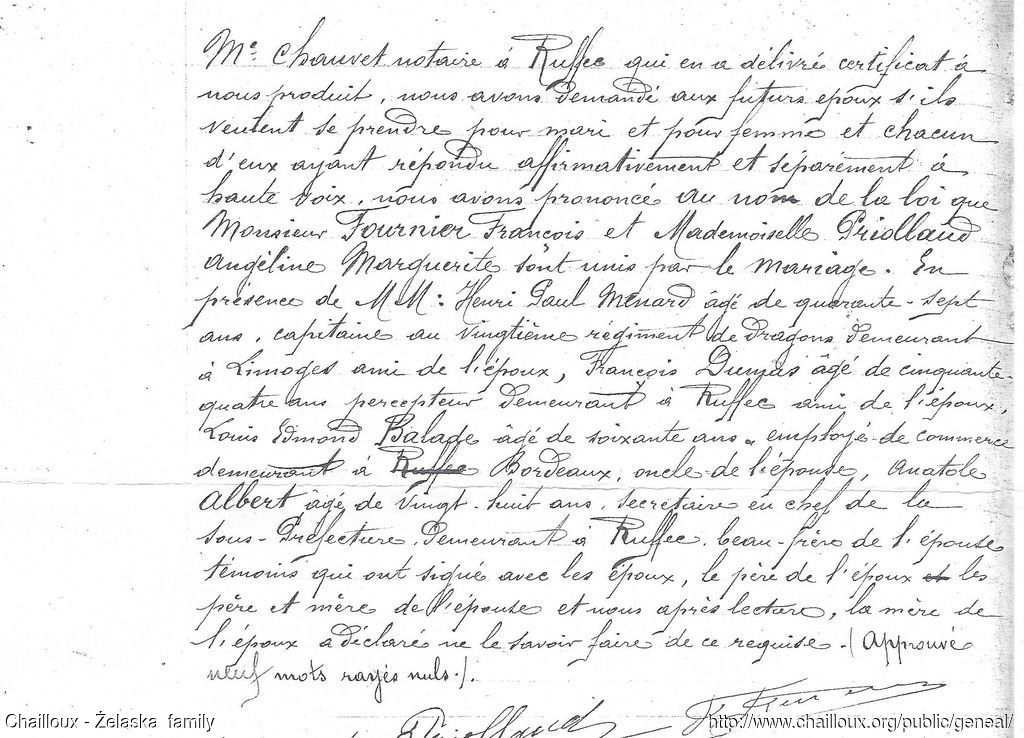 Me Chauvet notaire à Ruffec qui en a délivré certificat à
nous produit, nous avons demandé aux futurs époux s'ils
veulent se prendre pour mari et pour femme et chacun
d'eux ayant répondu affirmativement et séparément à
haute voix, nous avons prononcé au nom de la loi que
Monsieur Fournier François et Mademoiselle Priolland
Angéline Marguerite sont unis par le mariage. En
présence de MM: Henri Paul Menard âgé de quarante-sept
ans, capitaine au vingtième régiment de dragons demeurant
à Limoges ami de l'époux, François Dumas âgé de cinquante-
quatre ans percepteur demeurant à Ruffec ami de l'époux,
Louis Edmond Balade âgé de soixante ans, employé de commerce
demeurant à Ruffec Bordeaux, oncle de l'épouse, Anatole
Albert âgé de vingt-huit ans, secrétaire en chef de la
sous-Préfecture, demeurant à Ruffec, beau-frère de l'épouse
témoins qui ont signé avec les époux, le père de l'époux et les
père et mère de l'épouse et nous après lecture, la mère de
l'époux a déclaré ne le savoir faire de ce requise. (Approuvé
neuf mots rayés nuls.).
Priolland
Chailloux - Želaska family
http://www.chailloux.org/public/geneal/